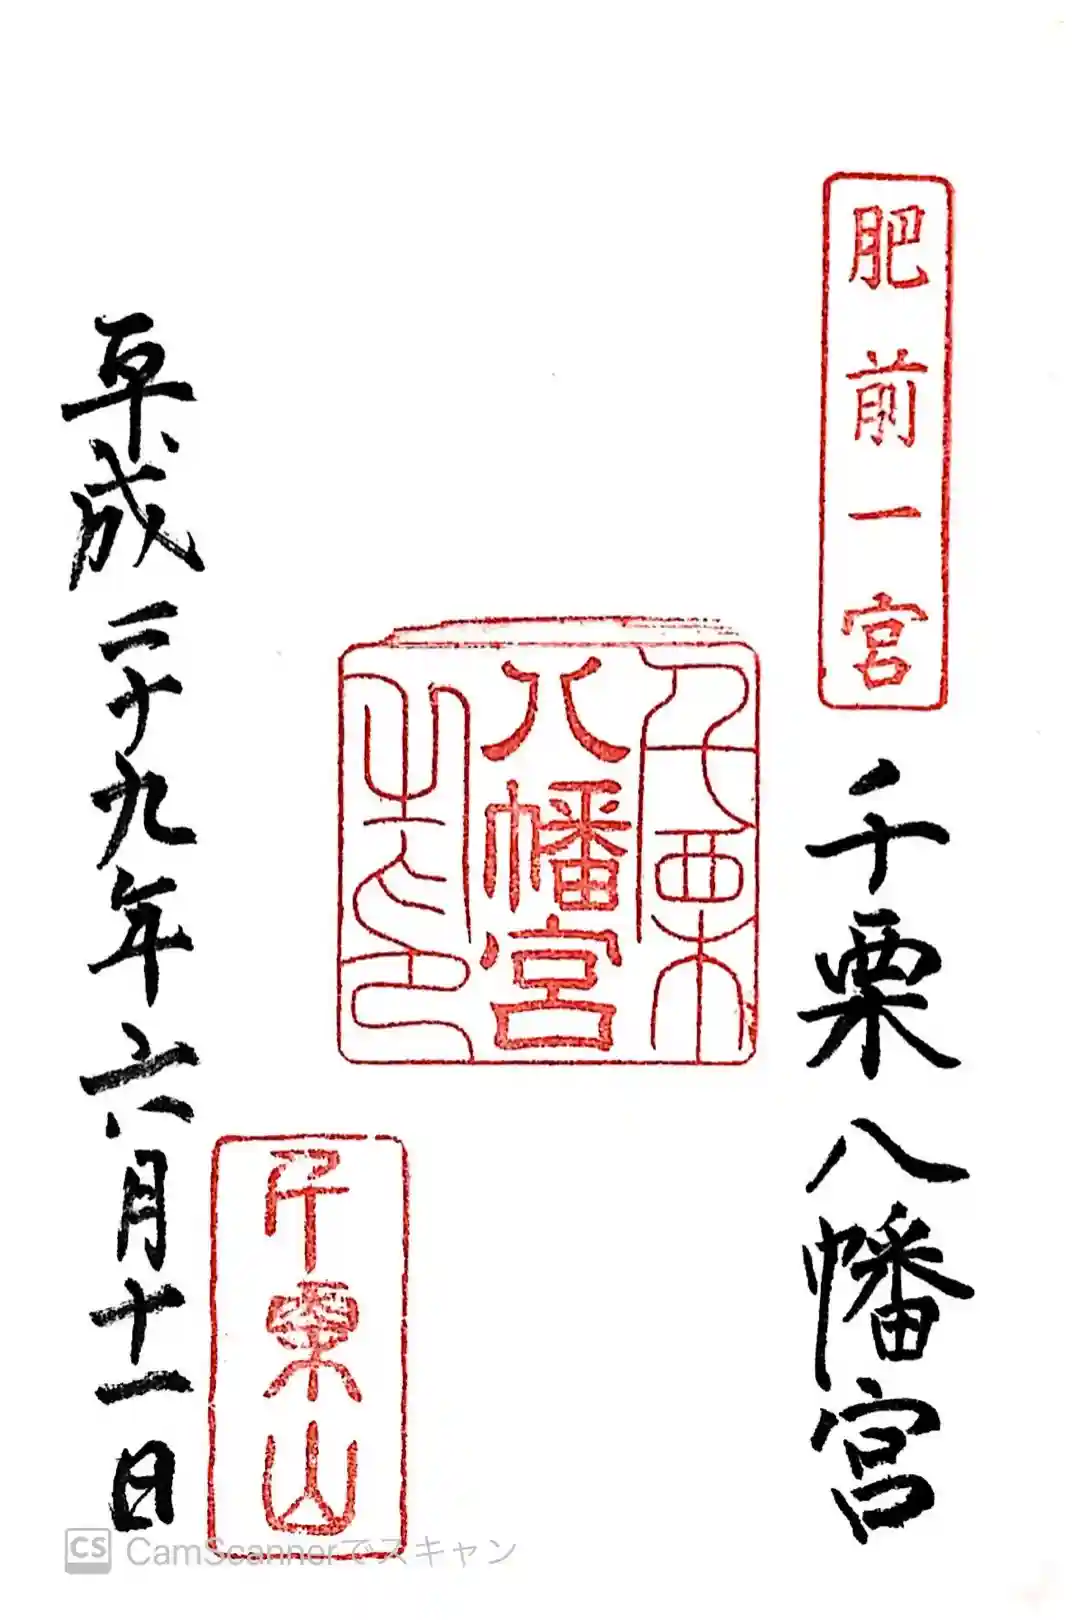 肥前一宮
千栗八幡宮
千栗
八幡宮
之印
千栗山
平成二十九年六月十一日
CS CamScannerでスキャン